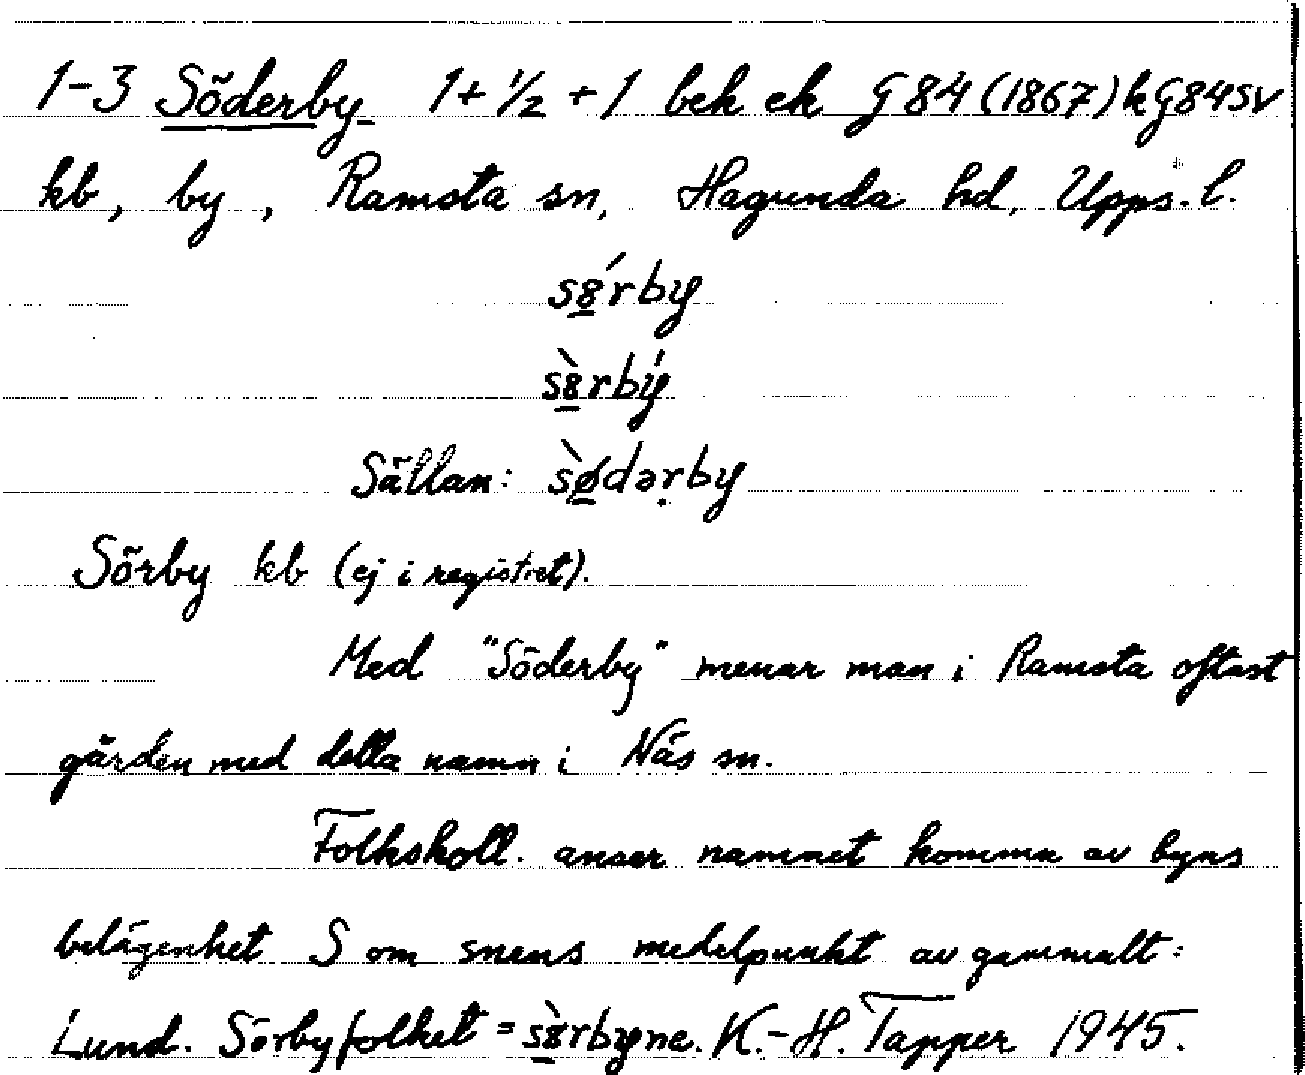 1-3 Söderby 1+½+1 bek ek G84 (1867) k G84SV
kb, by, Ramsta sn, Hagunda hd, Upps. l.
s8́rby
s8̀rbý
Sällan: sø̀dərby
Sörby kb (ej i registret).
Med "Söderby" menar man i Ramsta oftast
gården med detta namn i Näs sn.
Folkskoll. anser namnet komma av byns
belägenhet S om snens medelpunkt av gammalt:
Lund. Sörbyfolket = s8̀rbyne. K.-H. Tapper 1945.